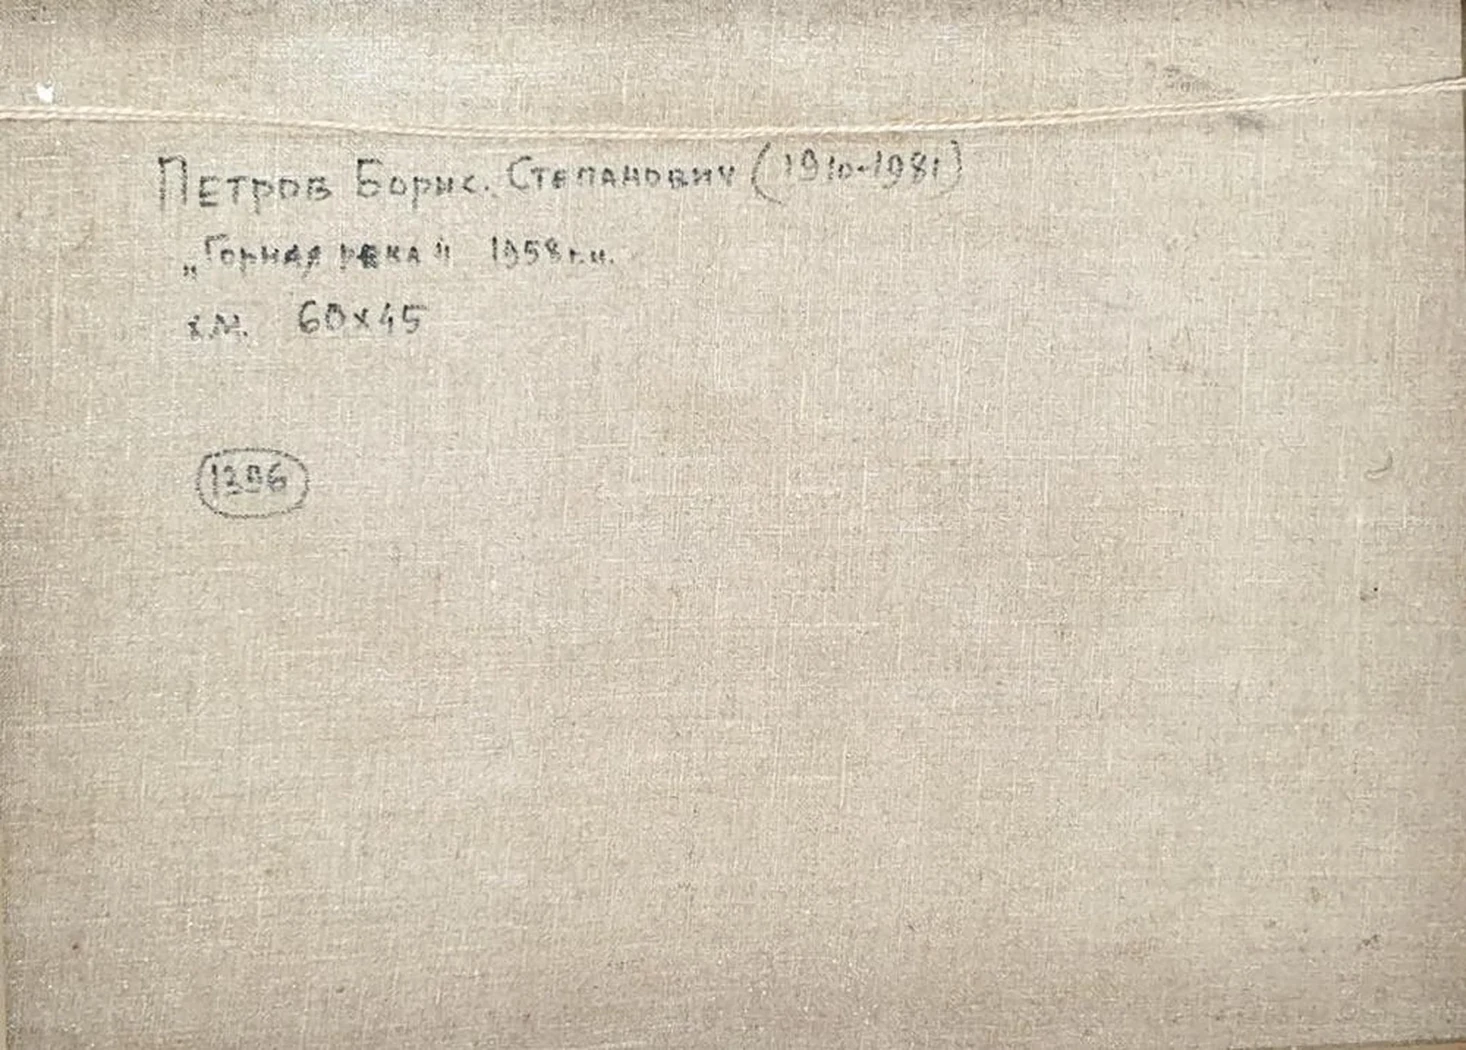 Петров Борис. Степанович (1910-1981)
„Горная река" 1958г.н.
х.м. 60х45